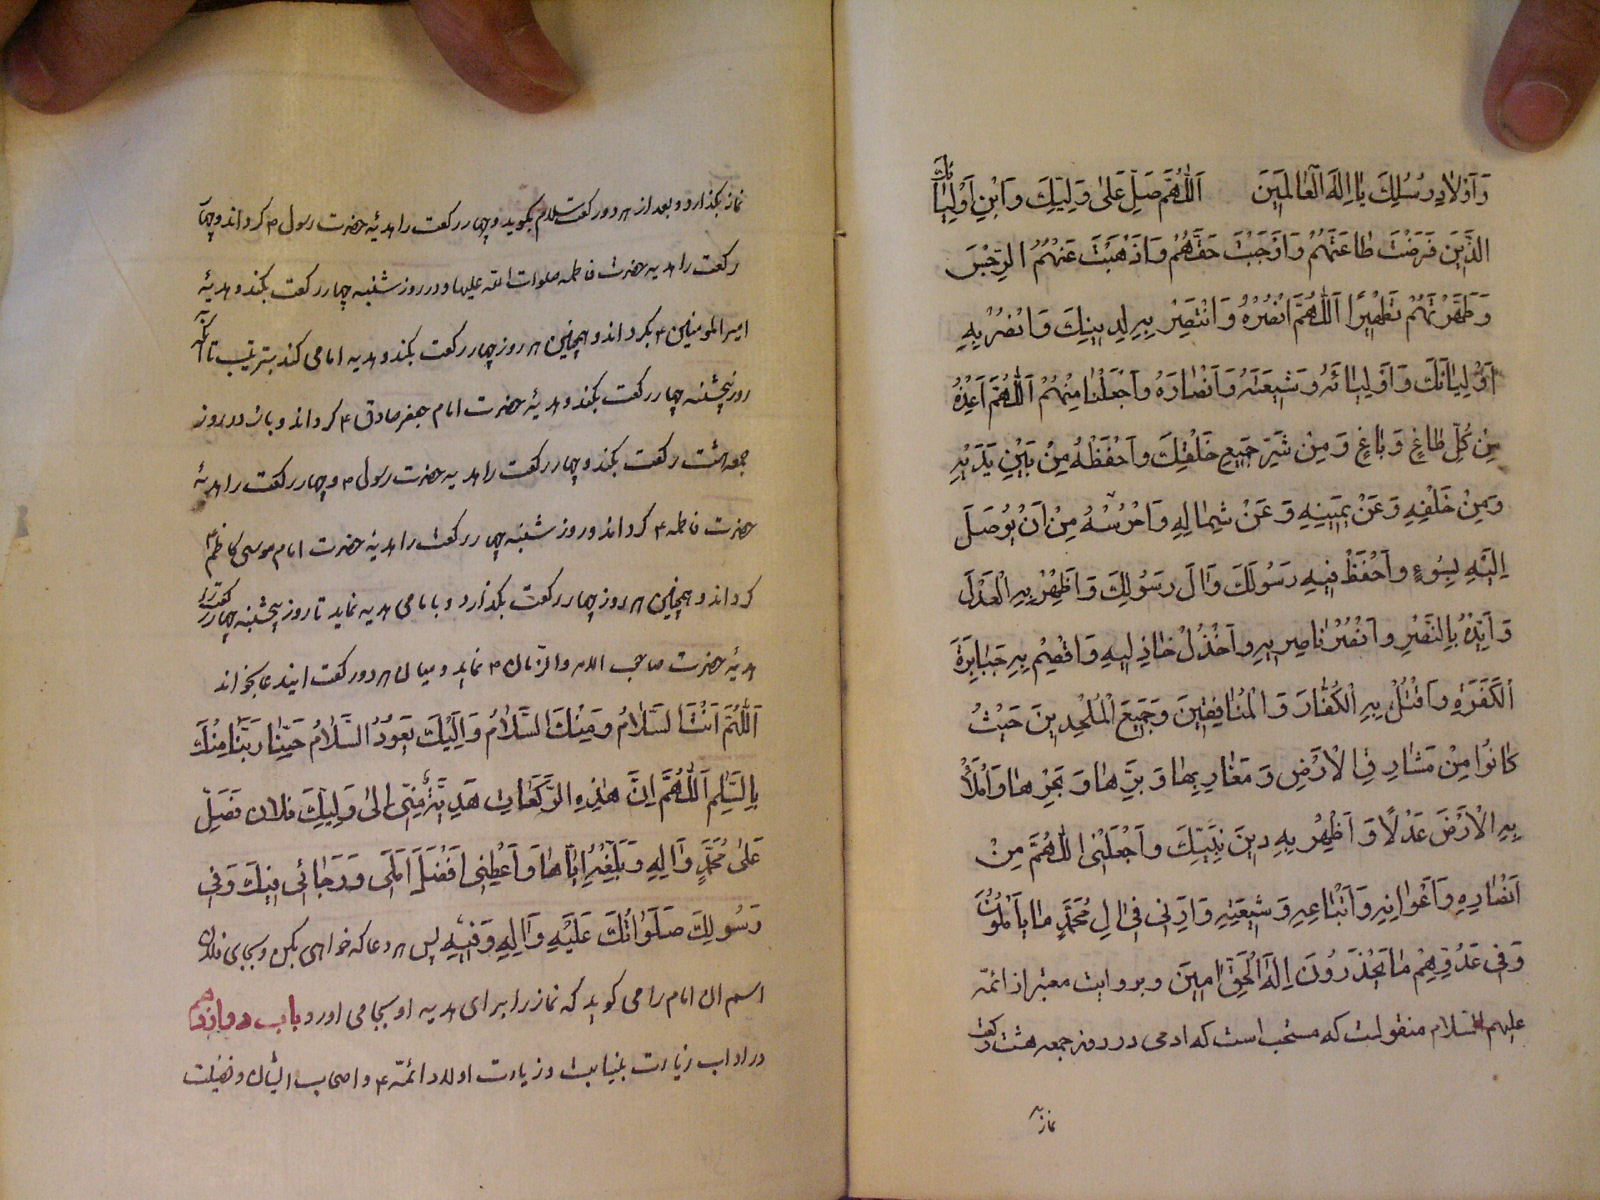 وَاَوْلادِ رُسُلِكَ يا اِلٰهَ الْعالَمينَ اَللّٰهُمَّ صَلِّ عَلٰى وَلِيِّكَ وَابْنِ اَوْلِيائِكَ
الَّذينَ فَرَضْتَ طاعَتَهُمْ وَاَوْجَبْتَ حَقَّهُمْ وَاَذْهَبْتَ عَنْهُمُ الرِّجْسَ
وَطَهَّرْتَهُمْ تَطْهيرًا اَللّٰهُمَّ انْصُرْهُ وَانْتَصِرْ بِهِ لِدينِكَ وَانْصُرْ بِهِ
اَوْلِيائَكَ وَاَوْلِيائَهُ وَشيعَتَهُ وَاَنْصارَهُ وَاجْعَلْنا مِنْهُمْ اَللّٰهُمَّ اَعِذْهُ
مِنْ كُلِّ طاغٍ وَباغٍ وَمِنْ شَرِّ جَميعِ خَلْقِكَ وَاحْفَظْهُ مِنْ بَيْنِ يَدَيْهِ
وَمِنْ خَلْفِهِ وَعَنْ يَمينِهِ وَعَنْ شِمالِهِ وَاحْرُسْهُ مِنْ اَنْ يُوصَلَ
اِلَيْهِ بِسُوءٍ وَاحْفَظْ فيهِ رَسُولَكَ وَالَ رَسُولِكَ وَاَظْهِرْ بِهِ الْعَدْلَ
وَاَيِّدْهُ بِالنَّصْرِ وَانْصُرْ ناصِريهِ وَاخْذُلْ خاذِليهِ وَاقْصِمْ بِهِ جَبابِرَةَ
الْكَفَرَةِ وَاقْتُلْ بِهِ الْكُفّارَ وَالْمُنافِقينَ وَجَميعَ الْمُلْحِدينَ حَيْثُ
كانُوا مِنْ مَشارِقِ الْاَرْضِ وَمَغارِبِها وَبَرِّها وَبَحْرِها وَامْلَأْ
بِهِ الْاَرْضَ عَدْلًا وَاَظْهِرْ بِهِ دينَ نَبِيِّكَ وَاجْعَلْنِى اللّٰهُمَّ مِنْ
اَنْصارِهِ وَاَعْوانِهِ وَاَتْباعِهِ وَشيعَتِهِ وَاَرِنى فى الِ مُحَمَّدٍ ما يَاْمُلُونَ
وَفى عَدُوِّهِمْ ما يَحْذَرُونَ اِلٰهَ الْحَقِّ امينَ وبروايت معتبر از ائمّه
عليهم السّلام منقولست كه مستحب است كه ادمى در روز جمعه هشت ركعت
نماز
نماز بكذارد و بعد از هر دو ركعت سلام بكويد و چهار ركعت را هديۀ حضرت رسول ص كرداند و چهار
ركعت را هديه حضرت فاطمه صلوات اللّه عليها و در روز شنبه چهار ركعت بكند و هديۀ
امير المومنين ع بكرداند و همچنين هر روز چهار ركعت بكند و هديه امامى كند بترتيب تا انكه
روز پنجشنبه چهار ركعت بكند و هديۀ حضرت امام جعفر صادق ع كرداند و باز در روز
جمعه هشت ركعت بكند و چهار ركعت را هديه حضرت رسول ص و چهار ركعت را هديۀ
حضرت فاطمه ع كرداند و روز شنبه چهار ركعت را هديۀ حضرت امام موسى كاظم ع
كرداند و همچنين هر روز چهار ركعت بكذارد و بامامى هديه نمايد تا روز پنجشنبه چهار ركعت را
هديۀ حضرت صاحب الامر والزّمان ع نمايد و ميان هر دو ركعت ايندعا بخواند
اَللّٰهُمَّ اَنْتَ السَّلامُ وَمِنْكَ السَّلامُ وَاِلَيْكَ يَعُودُ السَّلامُ حَيِّنا رَبَّنا مِنْكَ
بِالسَّلامِ اَللّٰهُمَّ اِنَّ هٰذِهِ الرَّكَعاتِ هَدِيَّةٌ مِنّى اِلٰى وَلِيِّكَ فلان فَصَلِّ
عَلٰى مُحَمَّدٍ وَالِهِ وَبَلِّغْهُ اِيّاها وَاَعْطِنى اَفْضَلَ اَمَلى وَرَجائى فيكَ وَفى
رَسُولِكَ صَلَواتُكَ عَلَيْهِ وَالِهِ وَفيهِ پس هر دعا كه خواهى بكن و بجاى فلان
اسم ان امام را مى كويد كه نماز را براى هديه او بجا مى اورد باب دوازدهم
در اداب زيارت بنيابت و زيارت اولاد ائمّه ع و اصحاب ايشان و فضيلت